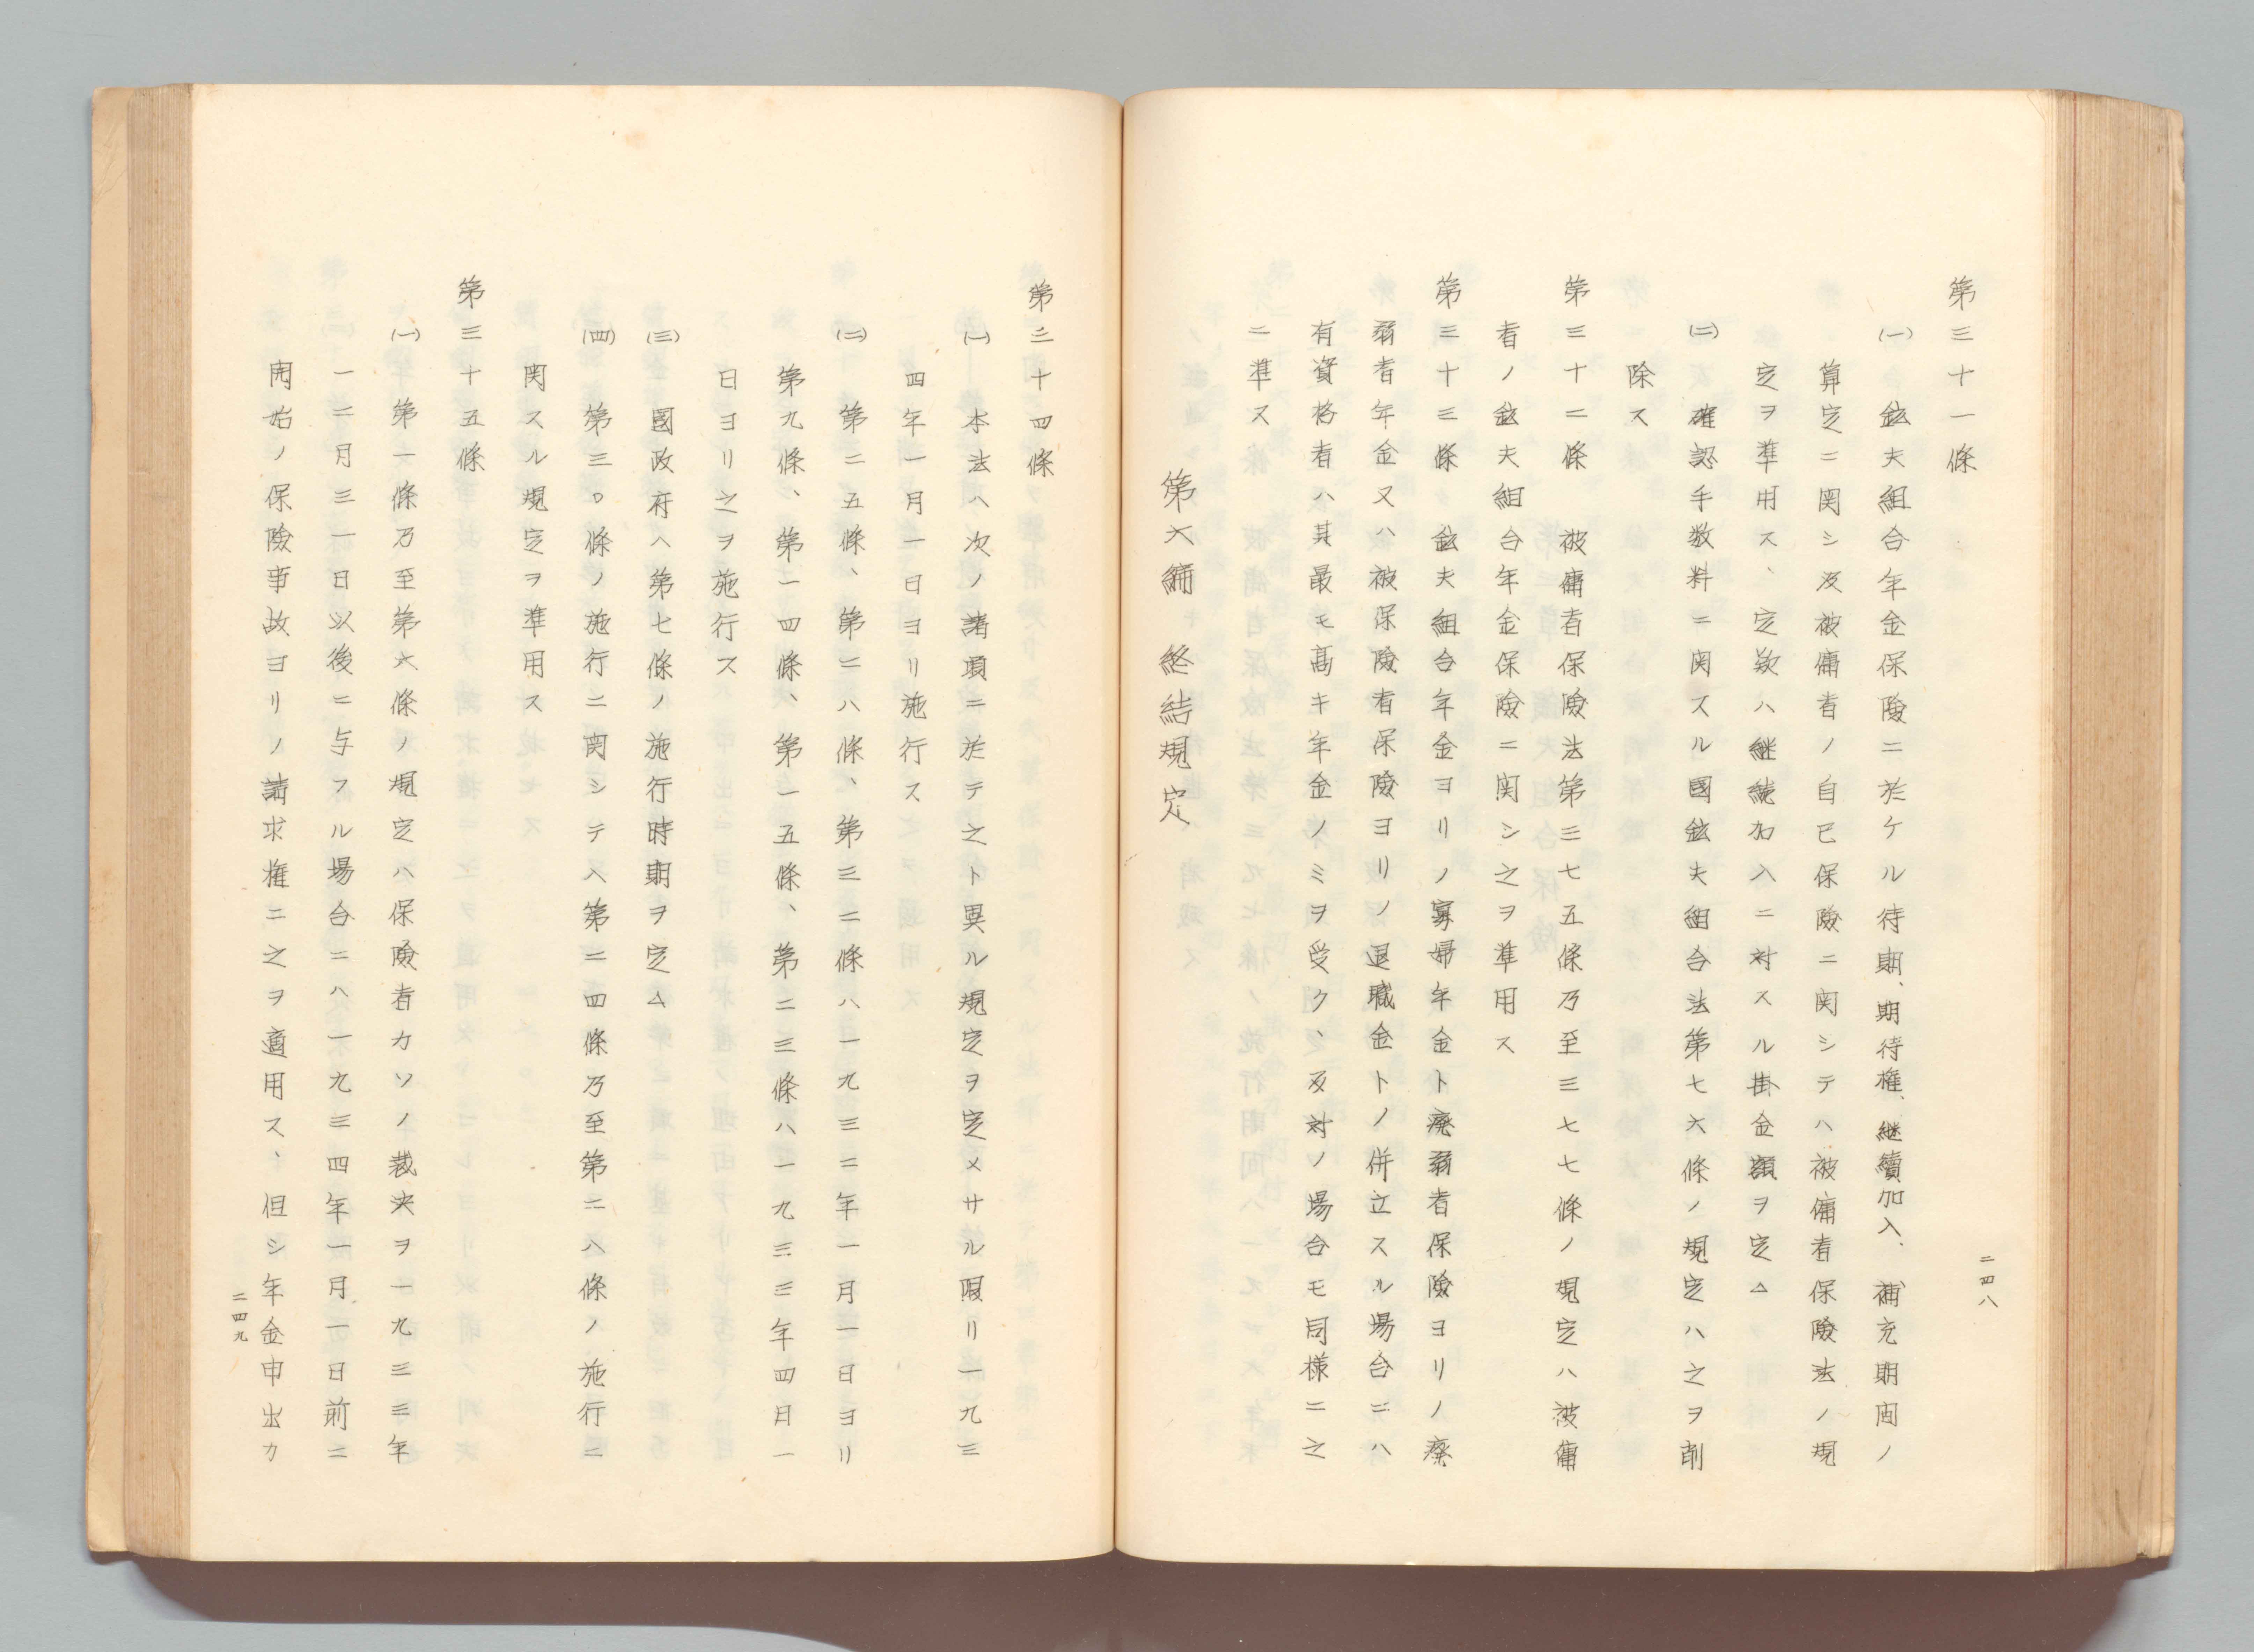 二四八
第三十一條
㈠ 鉱夫組合年金保険ニ於ケル待期、期待権、継續加入、補充期間ノ
算定ニ関シ及被傭者ノ自己保険ニ関シテハ被傭者保険法ノ規
定ヲ準用ス、定款ハ継続加入ニ対スル掛金額ヲ定ム
㈡ 確認手数料ニ関スル國鉱夫組合法第七六條ノ規定ハ之ヲ削
除ス
第三十二條 被傭者保険法第三七五條乃至三七七條ノ規定ハ被傭
者ノ鉱夫組合年金保険ニ関シ之ヲ準用ス
第三十三條 鉱夫組合年金ヨリノ寡婦年金ト廃弱者保険ヨリノ廃
弱者年金又ハ被保険者保険ヨリノ退職金トノ併立スル場合ニハ
有資格者ハ其最モ高キ年金ノミヲ受ク、反対ノ場合モ同様ニ之
ニ準ス
第六編 終結規定
第三十四條
㈠ 本法ハ次ノ諸項ニ於テ之ト異ル規定ヲ定メサル限リ一九三
四年一月一日ヨリ施行ス
㈡ 第二五條、第二八條、第三二條ハ一九三二年一月一日ヨリ
第九條、第一四條、第一五條、第二三條ハ一九三三年四月一
日ヨリ之ヲ施行ス
㈢ 國政府ハ第七條ノ施行時期ヲ定ム
㈣ 第三〇條ノ施行ニ関シテハ第二四條乃至第二八條ノ施行ニ
関スル規定ヲ準用ス
第三十五條
㈠ 第一條乃至第六條ノ規定ハ保険者カソノ裁決ヲ一九三三年
一二月三一日以後ニ与フル場合ニハ一九三四年一月一日前ニ
開始ノ保険事故ヨリノ請求権ニ之ヲ適用ス、但シ年金申出カ
二四九